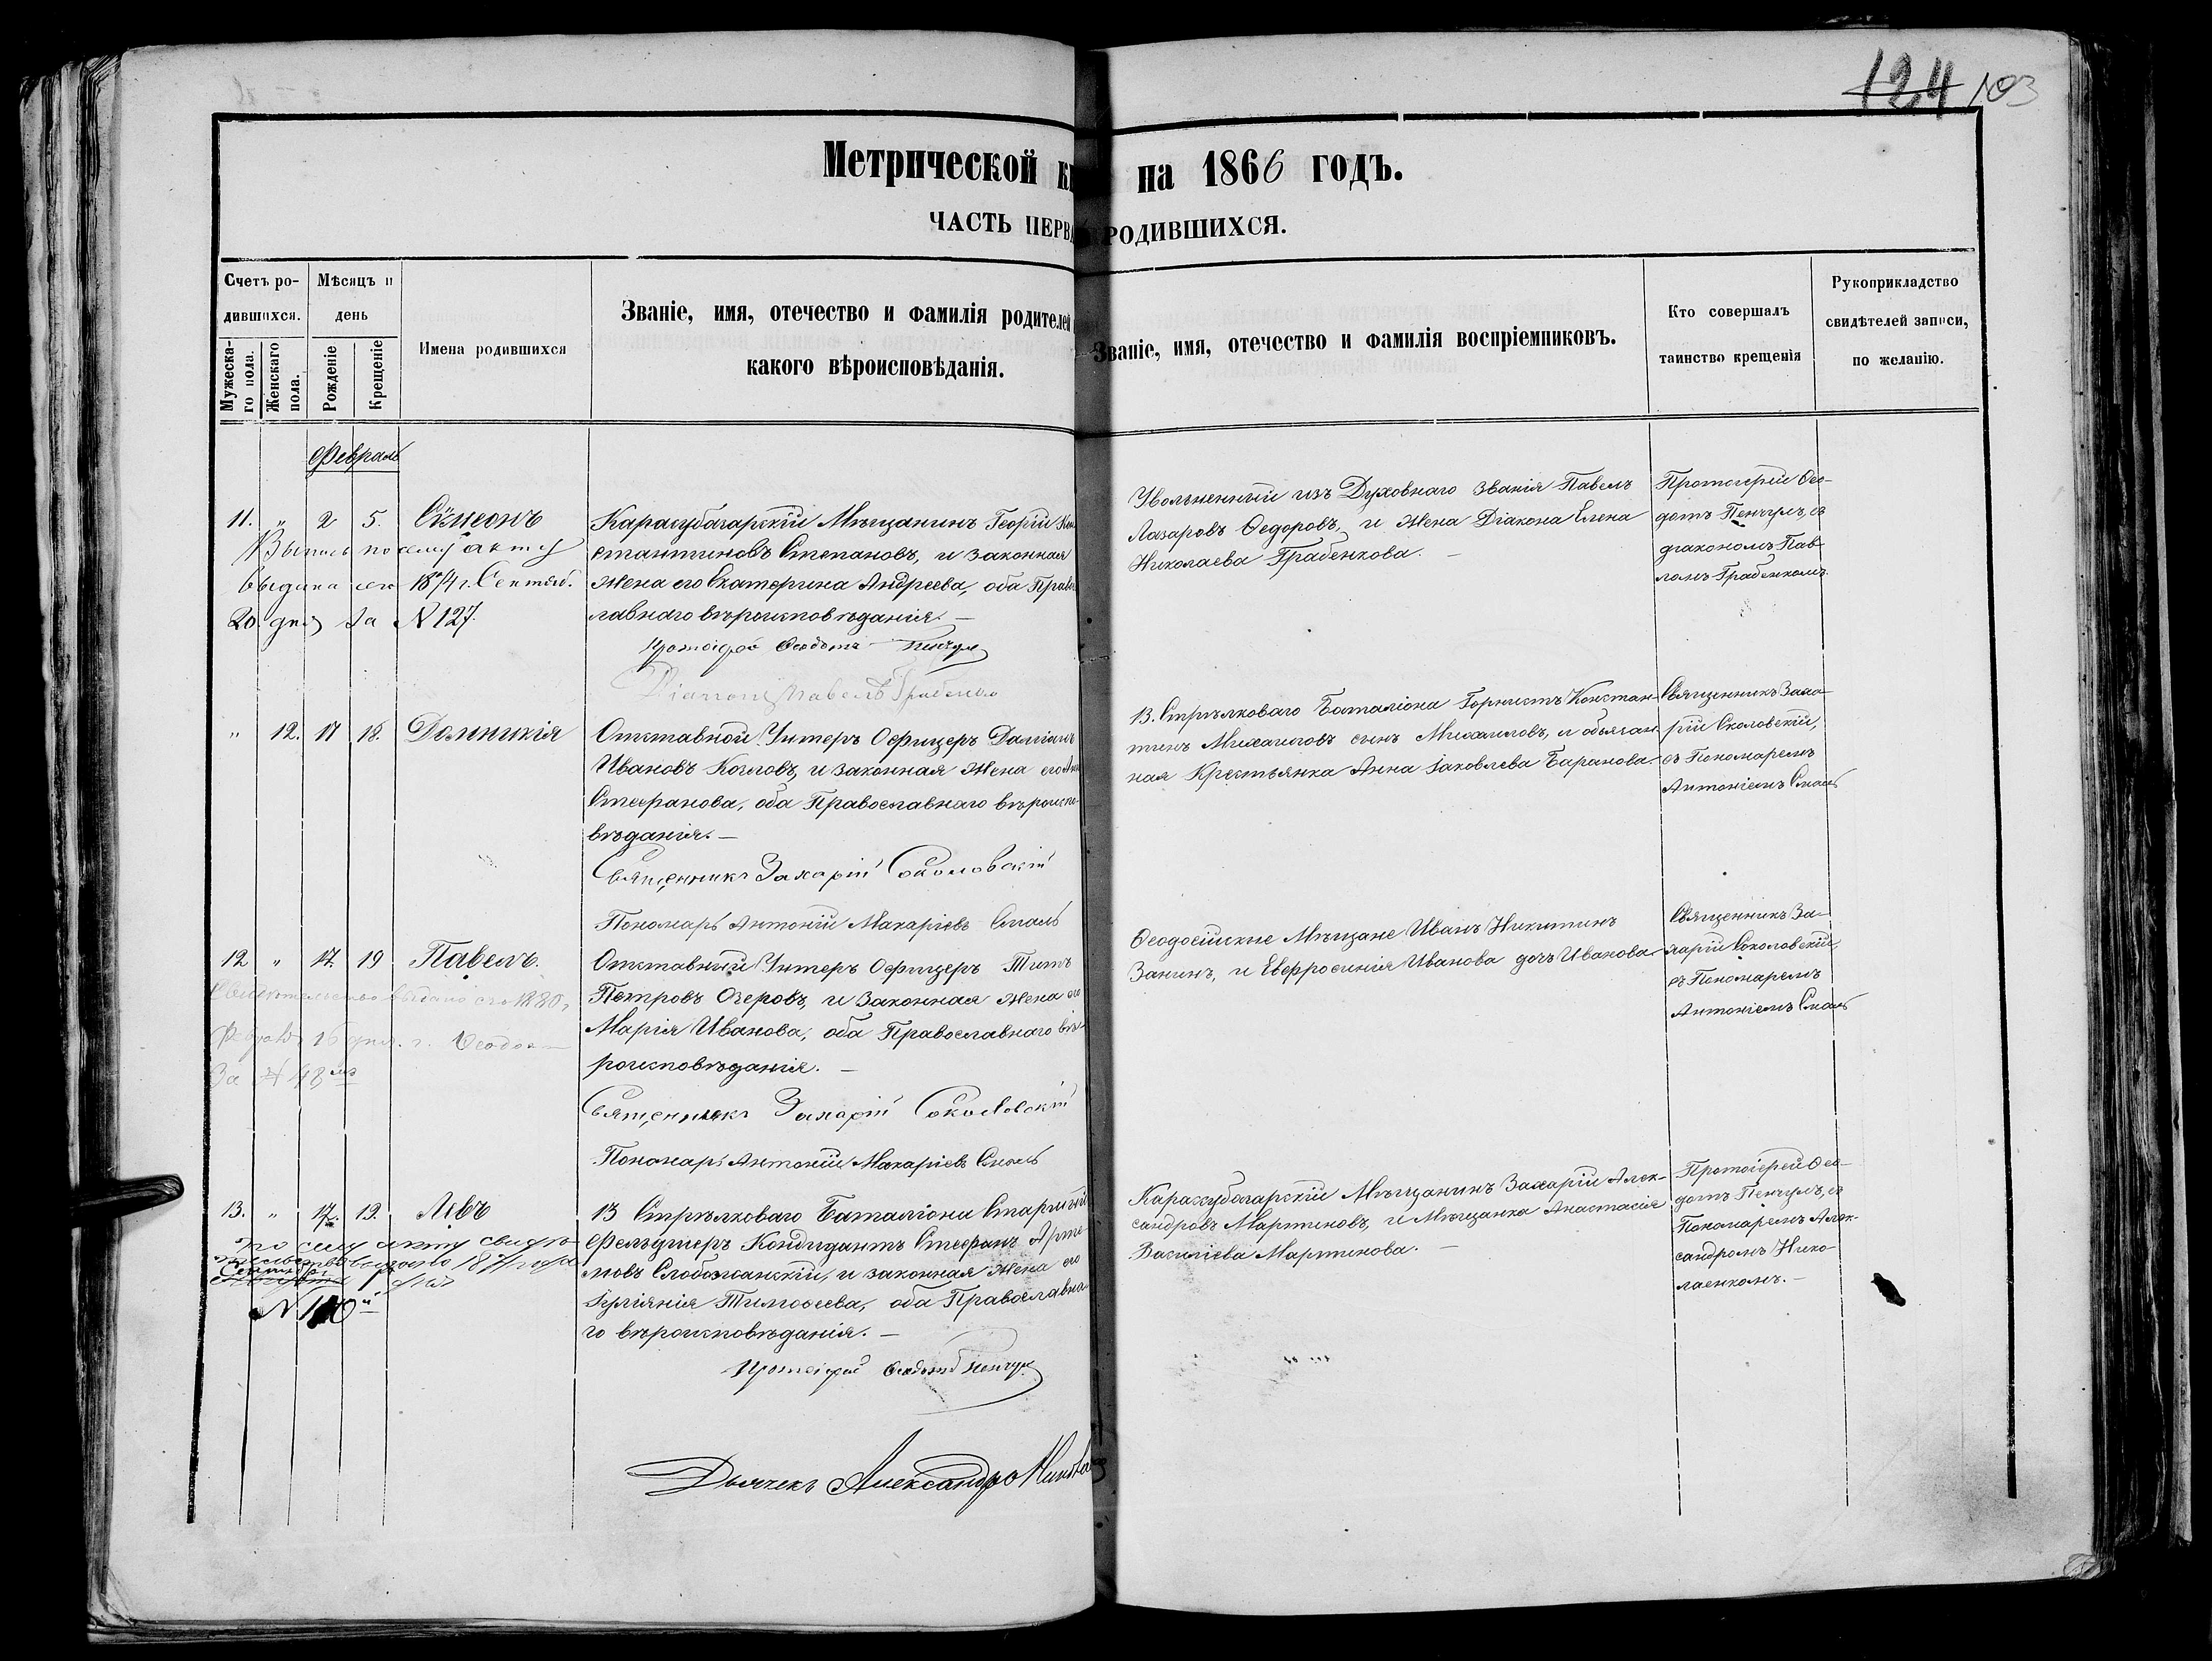 124 103
Метрической кн на 1866 годъ.
ЧАСТЬ ПЕРВА РОДИВШИХСЯ.
Счетъ ро-
дившихся.
Мужеска-
го пола.
Женскаго
пола.
Мѣсяцъ и
день
Рожденіе
Крещеніе
Имена родившихся
Званіе, имя, отечество и фамилія родителей
какого вѣроисповѣданія.
Званіе, имя, отечество и фамилія воспріемниковъ.
Кто совершалъ
таинство крещенія
Рукоприкладство
свидѣтелей записи,
по желанію.
Февраль
11. " 2 5. Сѵмеонъ
Выпись по сему акту
выдана 1874 г. Сентяб.
20 дня за N 127.
Карасубазарскій Мѣщанинъ Георгій Кон
стантиновъ Степановъ, и законная
жена его Екатерина Андреева, оба Право
лавнаго вѣроисповѣданія. —
Протоіерей Ѳеодотъ Пенчулъ
Діаконъ Павелъ Грабенко
Увольненный изъ Духовнаго званія Павелъ
Лазаровъ Ѳедоровъ, и жена Діакона Елена
Николаева Грабенкова. —
Протоіерей Ѳео-
дотъ Пенчулъ, съ
діакономъ Пав-
ломъ Грабенкомъ.
" 12. 17 18. Домникія
Отставной Унтеръ Офицеръ Даміанъ
Ивановъ Козловъ, и законная жена его
Стефанова, оба Православнаго вѣроиспо-
вѣданія. —
Священникъ Захарій Соколовскій
Пономарь Антоній Макаріевъ
13. Стрѣлковаго Баталіона Горнистъ Констан-
тинъ Михаиловъ сынъ Михаиловъ, и
ная Крестьянка Анна Іаковлева Баранова.
Священникъ Заха-
рій Соколовскій,
съ Пономаремъ
Антоніемъ
12 " 17 19 Павелъ.
Свидѣтельство выдано 1880,
16 дня.
За N 48
Отставный Унтеръ Офицеръ Титъ
Петровъ Озеровъ, и законная жена его
Марія Иванова, оба Православнаго вѣ-
роисповѣданія. —
Священникъ Захарій Соколовскій
Пономарь Антоній Макаріевъ
Ѳеодосійскіе Мѣщане Иванъ Никитинъ
Занинъ, и Евфросинія Иванова дочь Иванова
Священникъ За-
харій Соколовскій,
съ Пономаремъ
Антоніемъ
13. " 17. 19. Левъ
По сему акту свидѣ-
N 110й
13 Стрѣлковаго Баталіона Старшій
Фельдшеръ Кондидантъ Стефанъ Арте
мовъ Слобожанскій, и законная жена его
Іуліянія Тимофеева, оба Православна-
го вѣроисповѣданія. —
Протоіерей Ѳеодотъ Пенчулъ
Дьячекъ Александръ
Карасубазарскій Мѣщанинъ Захарій Алек-
сандровъ Мартиновъ, и Мѣщанка Анастасія
Василіева Мартинова. —
Протоіерей Ѳео-
дотъ Пенчулъ, съ
Пономаремъ Алек-
сандромъ Нико-
лаенкомъ. —